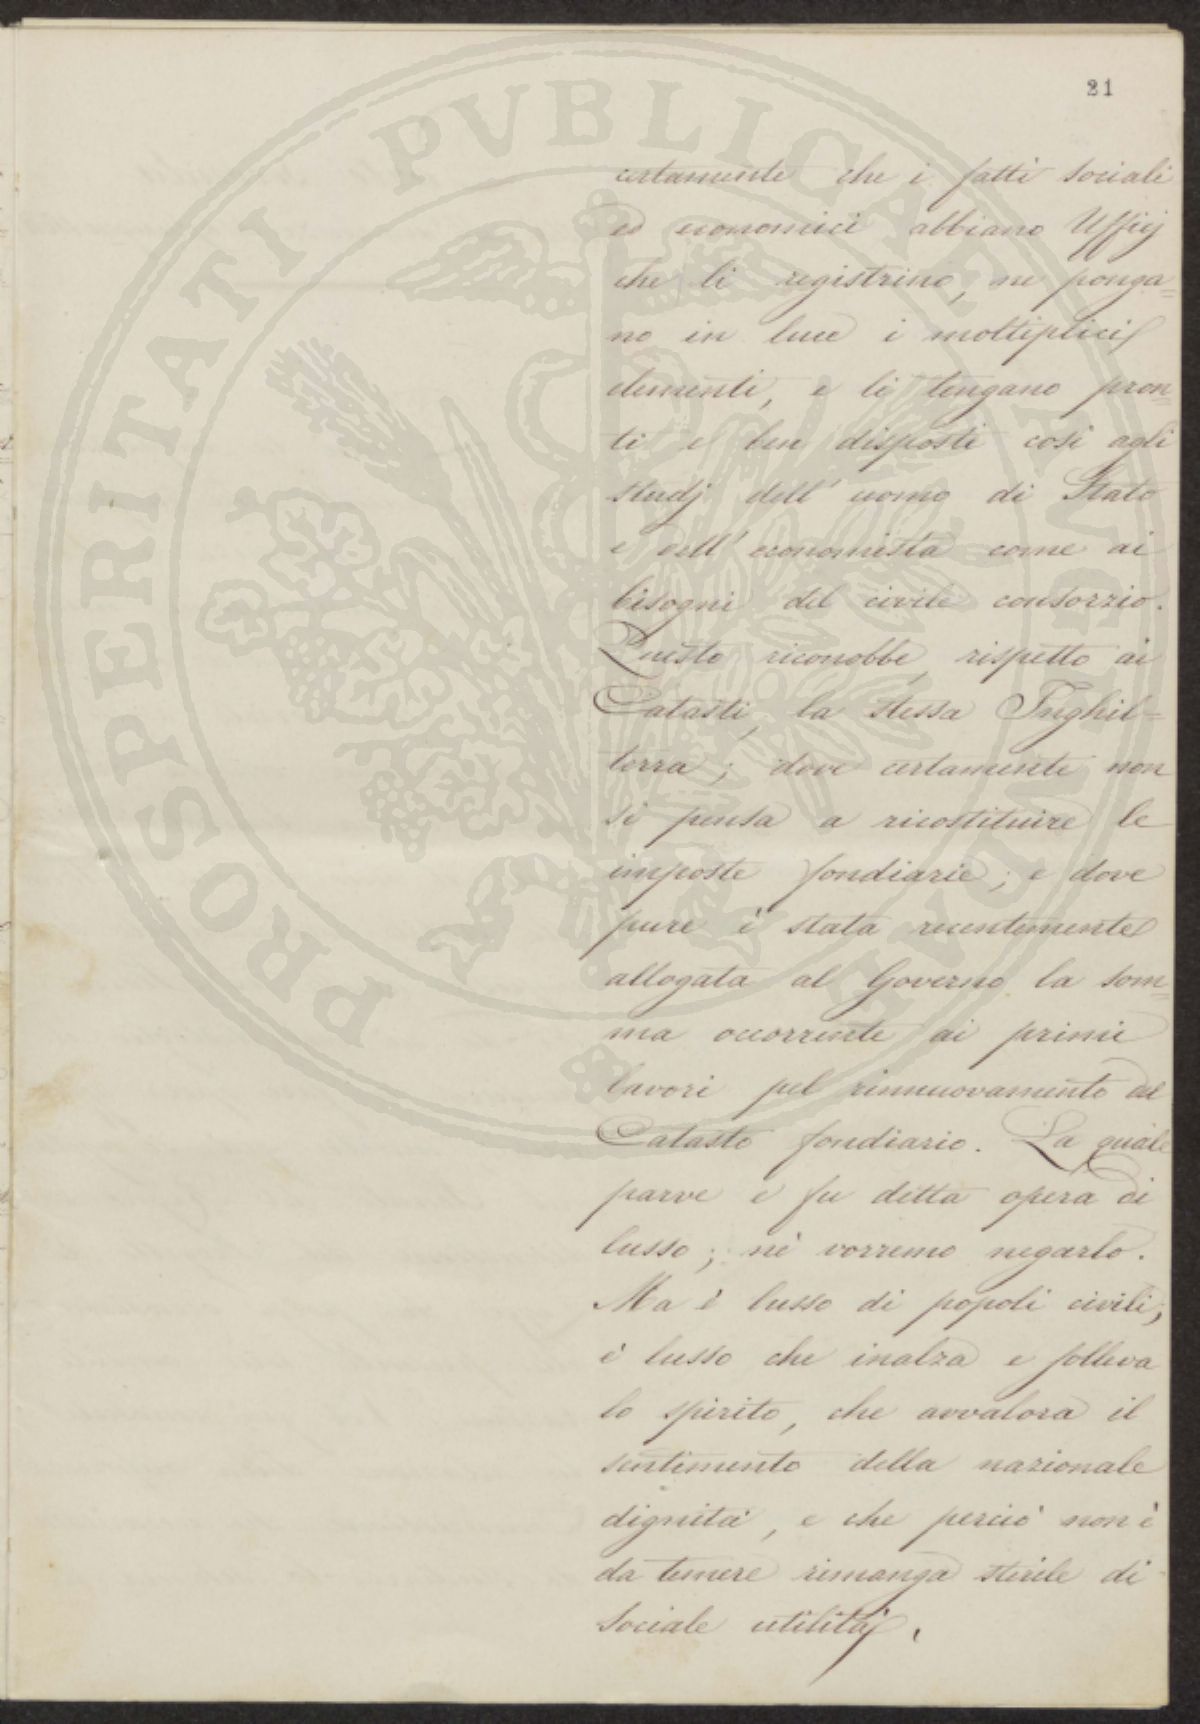 21
certamente che i fatti sociali
ed economici abbiano Ufficj
che li registrino, ne ponga=
no in luce i moltiplici
elementi, e li tengano pron=
ti e ben disposti così agli
studj dell' uomo di Stato
e dell' economista come ai
bisogni del civile consorzio.
Questo riconobbe, rispetto ai
Catasti, la stessa Inghil=
terra; dove certamente non
si pensa a ricostituire le
imposte fondiarie; e dove
pure è stata recentemente
allogata al Governo la som=
ma occorrente ai primi
lavori pel rinnuovamento del
Catasto fondiario. La quale
parve e fu detta opera di
lusso; nè vorremo negarlo.
Ma è lusso di popoli civili;
è lusso che inalza e solleva
lo spirito, che avvalora il
sentimento della nazionale
dignità, e che perciò non è
da temere rimanga sterile di
sociale utilità.
PROSPERITATI PVBLICAE AVGENDAE